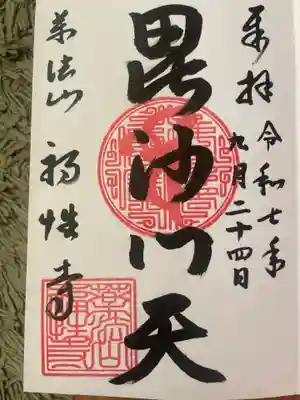 奉拝 令和七年
九月二十四日
毘沙門天
薬法山 福性寺